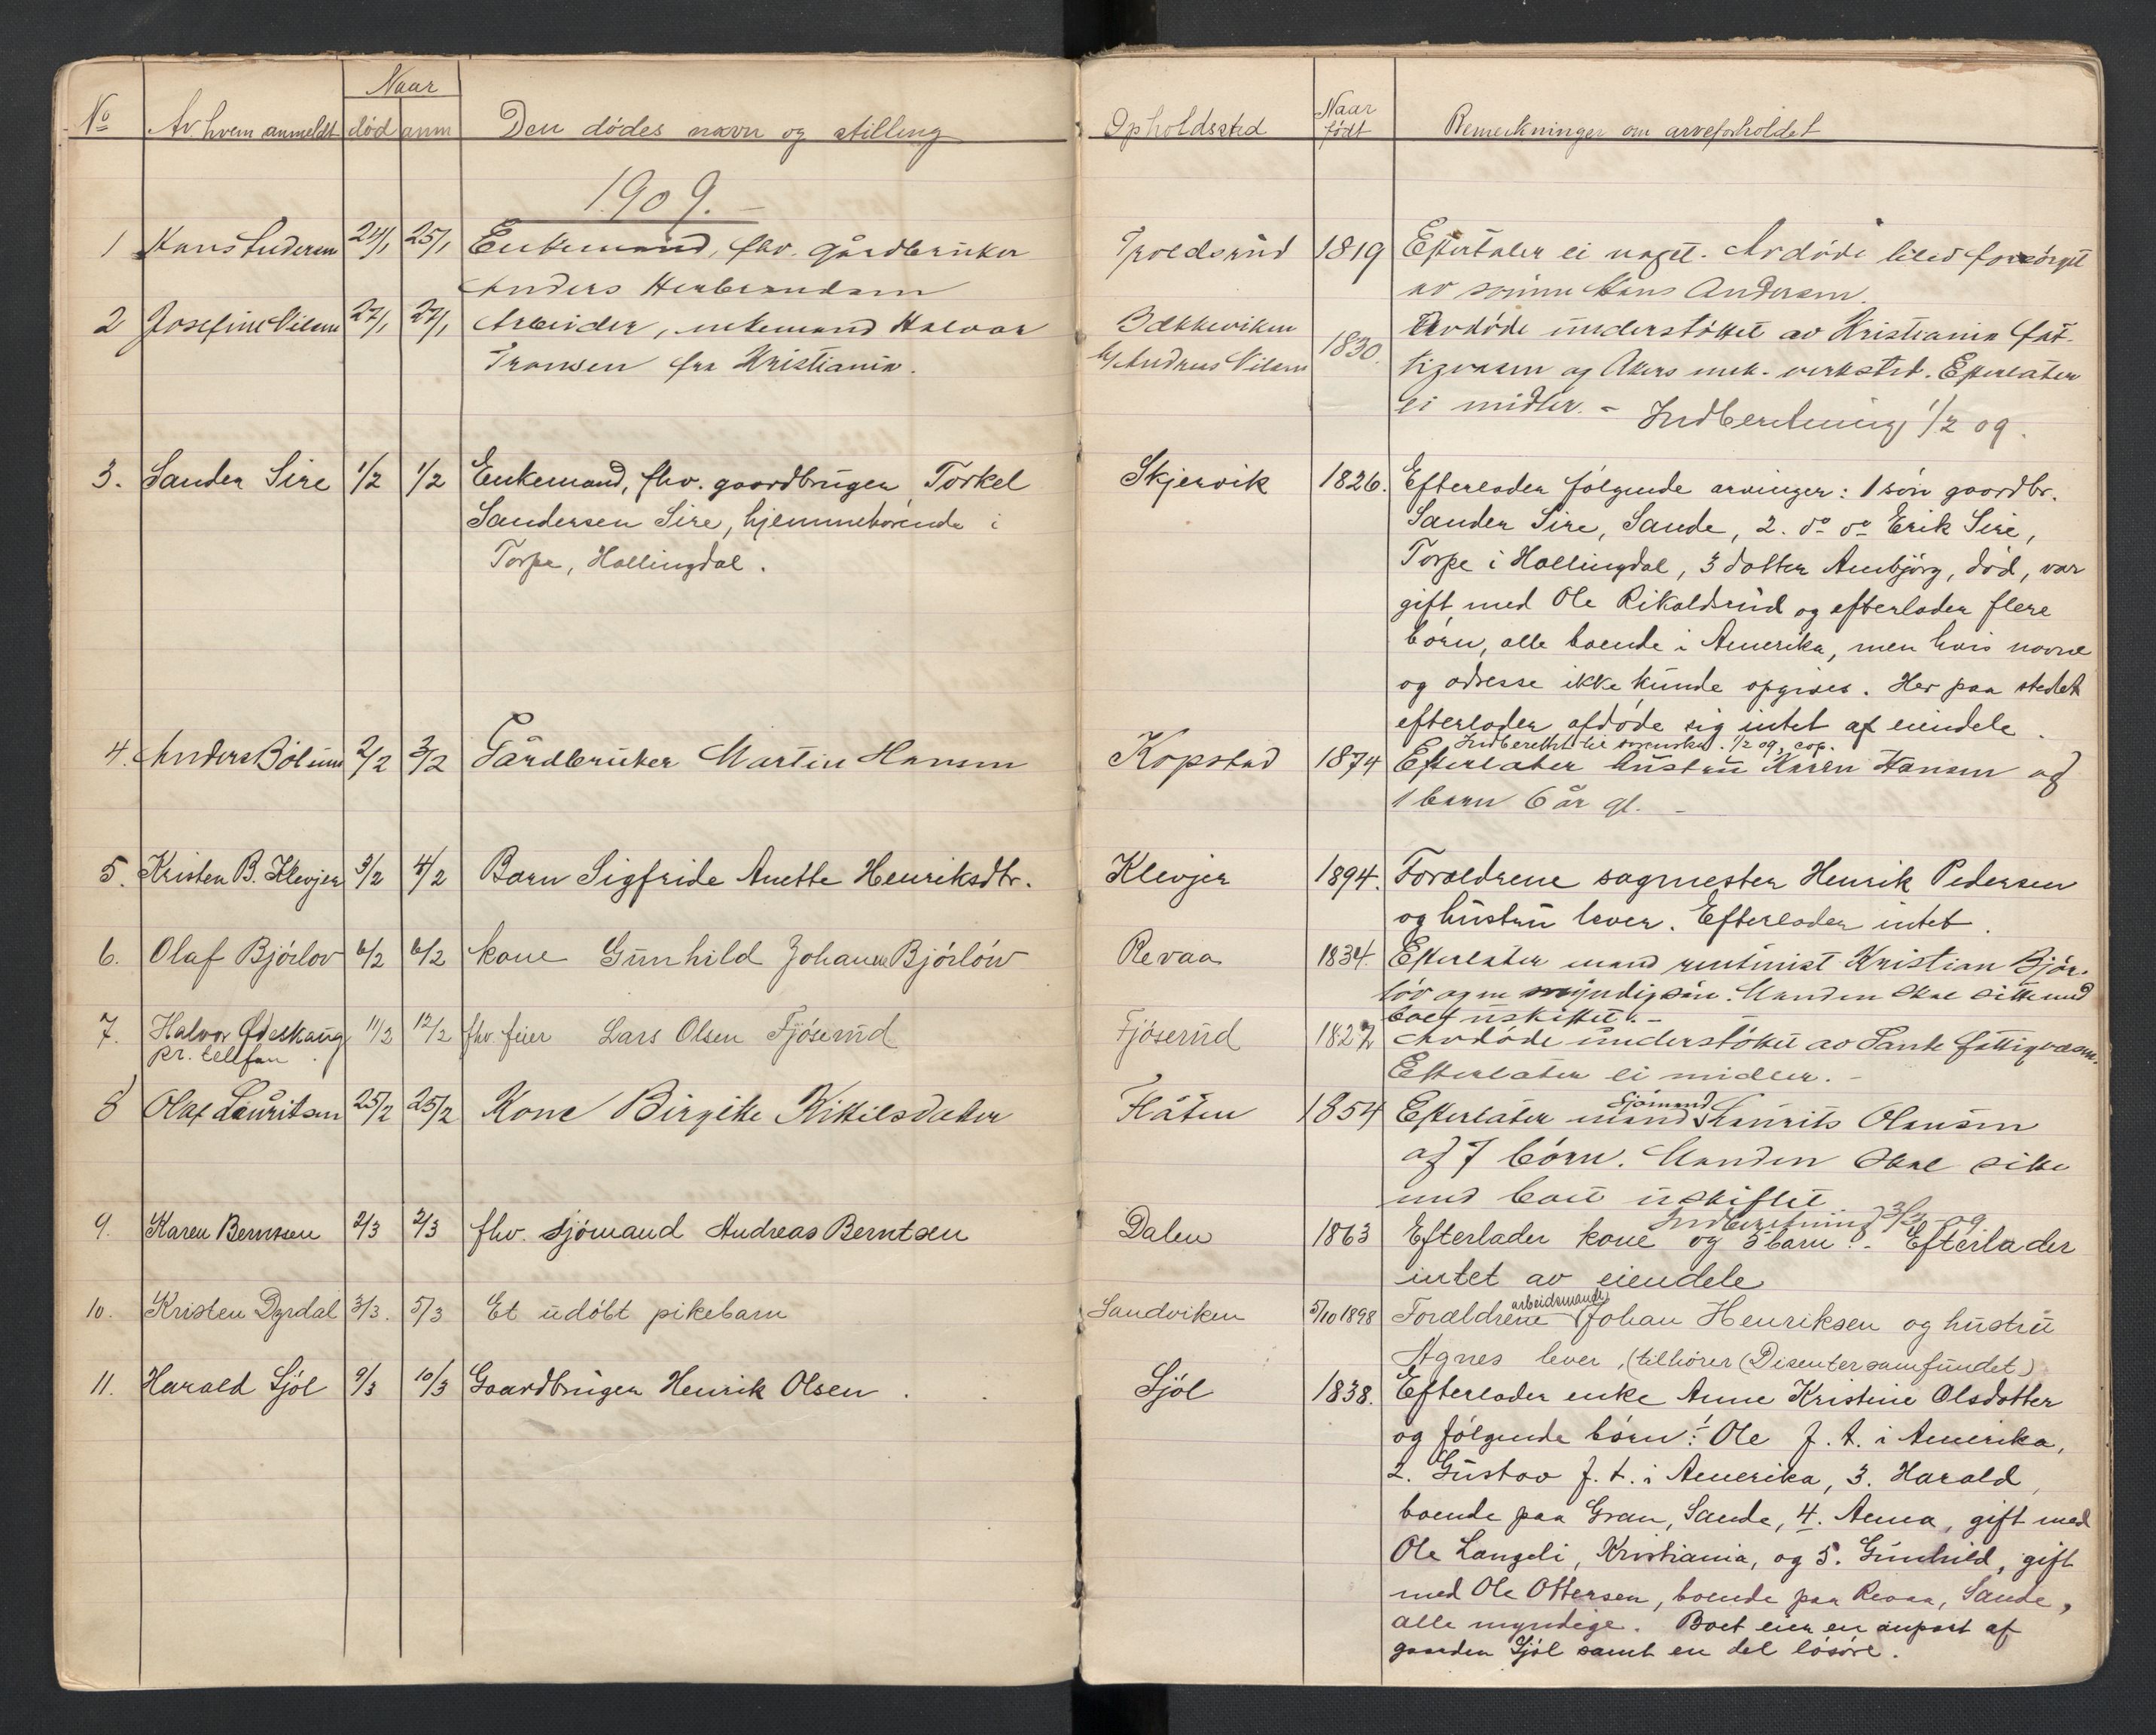 Naar
No Av hvem anmeldt død anm Den dødes navn og stilling
1909. -
1 Hans Andersen 24/1 25/1 Enkemand, fhv. gårdbruker
Anders Herbrandsen
2 Josefine Nilsen 27/1 27/1 Arbeider, enkemand Halvor
Transen fra Kristiania.
3. Sander Sire 1/2 1/2 Enkemand, fhv. gaardbruger Torkel
Sandersen Sire, hjemmehørende i
Torpe, Hallingdal.
4. Anders Bølum 2/2 3/2 Gårdbruker Martin Hansen
5. Kristen B. Klevjer 3/2 4/2 Barn Sigfride Anette Henriksdtr.
6. Olaf Bjørløv 6/2 6/2 kone Gunhild Johanne Bjørløw
7. Halvor Ødeskaug 11/2 12/2 fhv feier Lars Olsen Fjøserud
pr. tellfon.
8 Olaf Lauritsen 25/2 25/2 Kone Birgitte Kittilsdatter
9. Karen Berntsen 2/3 2/3 fhv. sjömand Andreas Berntsen
10. Kristen Dyrdal 3/3. 5/3 Et udöbt pikebarn
11. Harald Sjøl 9/3 10/3 Gaardbruger Henrik Olsen.
Naar
Opholdssted født Bemerkninger om arveforholdet
Troldsrud 1819 Efterlater ei noget. Avdøde blev forsørget
av sønnen Hans Andersen.
Bækkeviken
h/ Andreas Nilsen 1830. Avdøde understøttet av Kristiania fat-
tigvæsen og Akers mek. verksted. Efterlater
ei midler. - Indberetning 1/2 09.
Skjervik 1826. Efterlader følgende arvinger: 1 søn gaardbr.
Sander Sire, Sande, 2. do do Erik Sire,
Torpe i Hallingdal, 3 datter Ambjørg, død, var
gift med Ole Rikoldsrud og efterlader flere
børn, alle boende i Amerika, men hvis navne
og adresse ikke kunde opgives. Her paa stedet
efterlader afdøde sig intet af eiendele.
Indberettet til sorenskr. 1/2 09, cop.
Kopstad 1874 Efterlater hustru Karen Hansen og
1 barn 6 år gl. -
Klevjer 1894. Forældrene sagmester Henrik Pedersen
og hustru lever. Efterlader intet.
Revaa 1834. Efterlater mand rentenist Kristian Bjør-
løv og en myndig søn. Manden skal sitte med
boet uskiftet. -
Fjøserud 1827 Avdøde understøttet av Sande fattigvæsen.
Efterlater ei midler. -
sjömand
Flåten 1854 Efterlater mand Laurits Olausen
og 7 børn. Manden skal sitte
med boet uskiftet
Indberetning 3/3 09
Dalen 1863 Efterlader kone og 5 barn. - Efterlader
intet av eiendele
arbeidsmand
Sandviken 5/10 1898 Forældrene Johan Henriksen og hustru
Agnes lever, (tilhører (Disentersamfundet)
Sjøl 1838. Efterlader enke Anne Kristine Olsdatter
og følgende børn: 1 Ole f. t. i Amerika,
2. Gustav f. t. i Amerika, 3. Harald,
boende paa Gran, Sande, 4. Anna, gift med
Ole Langeli, Kristiania, og 5. Gunhild, gift
med Ole Ottersen, boende paa Revaa, Sande,
alle myndige. Boet eier en anpart af
gaarden Sjøl samt en del løsøre.